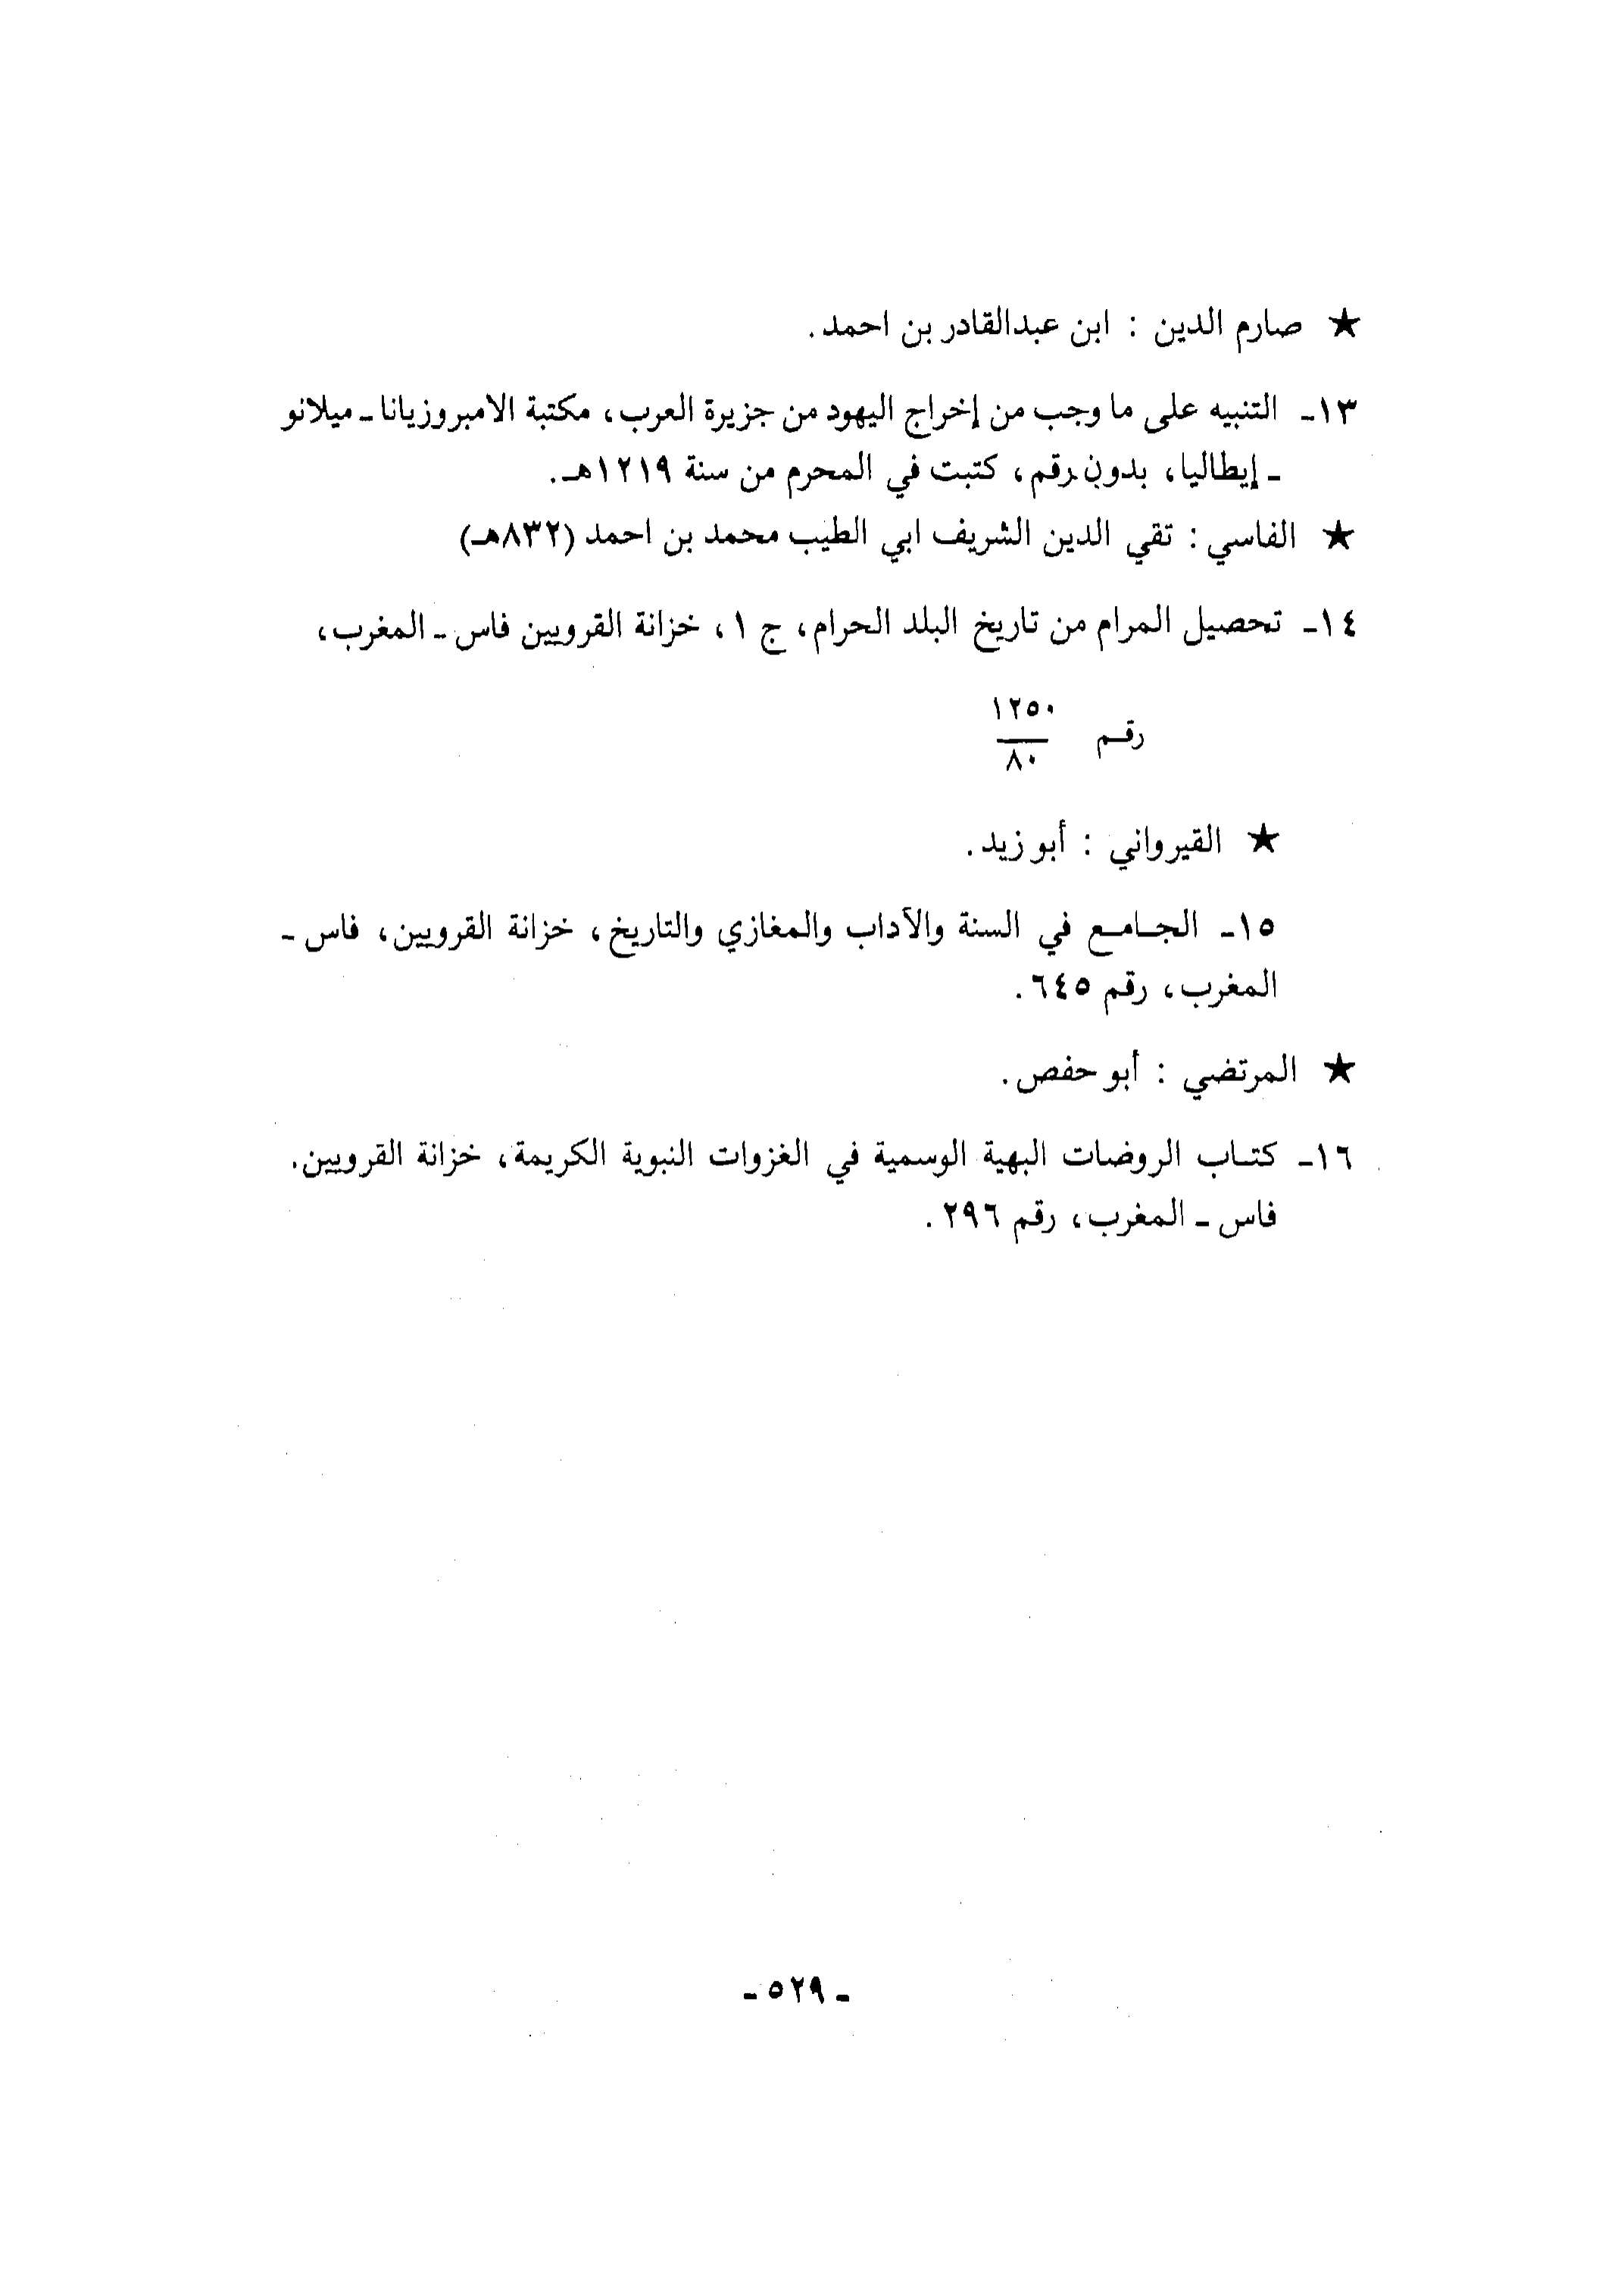 ★ صارم الدين : ابن عبدالقادر بن احمد.
١٣ـ التنبيه على ما وجب من إخراج اليهود من جزيرة العرب، مكتبة الامبروزيانا ـ ميلانو
ـ إيطاليا، بدون رقم، كتبت في المحرم من سنة ١٢١٩هـ.
★ الفاسي : تقي الدين الشريف ابي الطيب محمد بن احمد (٨٣٢هـ)
١٤ـ تحصيل المرام من تاريخ البلد الحرام، ج ١، خزانة القرويين فاس ـ المغرب،
رقم ١٢٥٠
٨٠
★ القيرواني : أبو زيد.
١٥ـ الجـامـع في السنة والآداب والمغازي والتاريخ، خزانة القرويين، فاس ـ
المغرب، رقم ٦٤٥.
★ المرتضي : أبو حفص.
١٦ـ كتـاب الروضات البهية الوسمية في الغزوات النبوية الكريمة، خزانة القرويين.
فاس ـ المغرب، رقم ٢٩٦.
ـ ٥٢٩ ـ